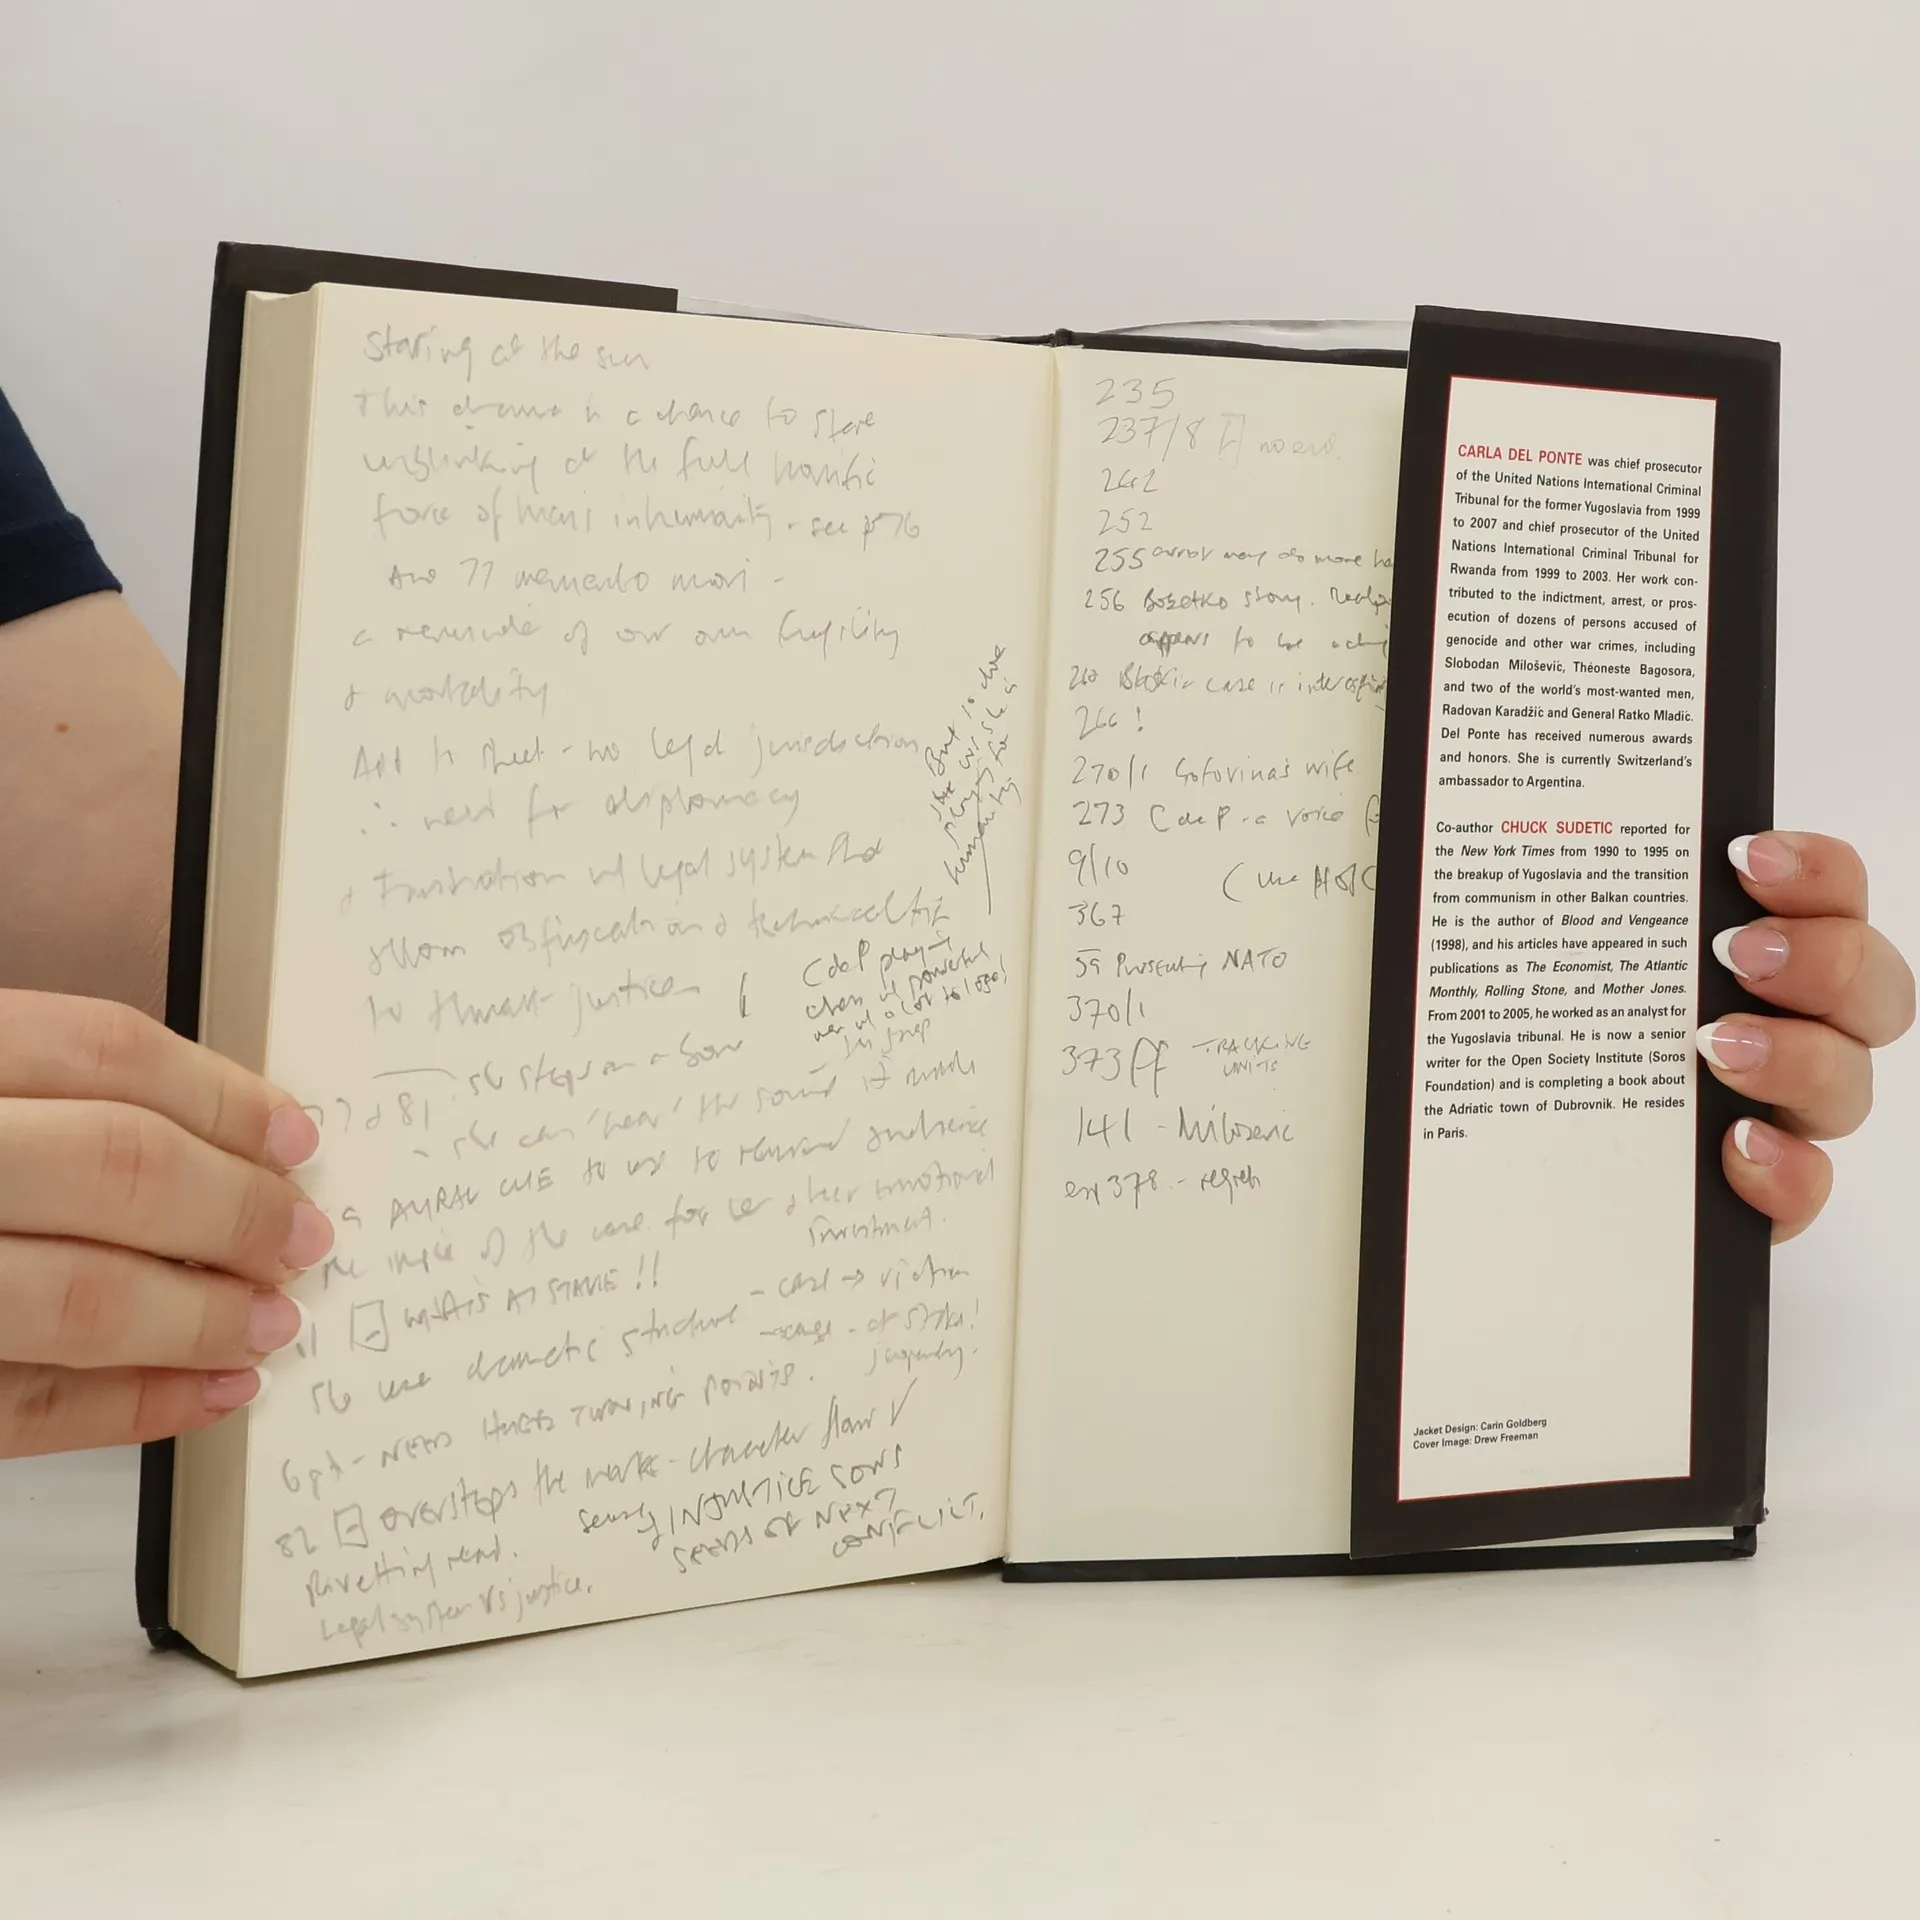 Staring at the sun
This drama is a chance to stare
unblinking at the full horrific
force of man's inhumanity - see p 76
AND 77 memento mori -
a reminder of our own fragility
& mortality
Add to sheet - no legal jurisdiction
∴ need for diplomacy
& Frustration w/ legal system that
allows obfuscation & technicalities
to thwart justice
But is due
humanity
CdelP playing
chess w/ powerful
men w/ a lot to lose!
77 & 81. steps on a bone
- she can 'hear' the sound it made
a AURAL CUE to use to remind audience
the impact of the case for her & her emotional
investment.
WHAT IS AT STAKE!!
use dramatic structure - case → victim
- at stake!
jeopardy.
6 pt - NEED THREE TURNING POINTS.
82 oversteps the mark - character flaw
sense of INJUSTICE SOWS
SEEDS OF NEXT
CONFLICT.
Rivetting read.
Legal system vs justice.
235
237/8 no evid.
242
252
255 may do more
256 story.
appears to be
260 case is interesting
266!
270/1 Gotovina's wife
273 CdelP - a voice
9/10
(use
367
59 Prosecuting NATO
370/1
373ff - TRACKING
UNITS
141 - Milosevic
378 - regrets
CARLA DEL PONTE was chief prosecutor
of the United Nations International Criminal
Tribunal for the former Yugoslavia from 1999
to 2007 and chief prosecutor of the United
Nations International Criminal Tribunal for
Rwanda from 1999 to 2003. Her work con-
tributed to the indictment, arrest, or pros-
ecution of dozens of persons accused of
genocide and other war crimes, including
Slobodan Milošević, Théoneste Bagosora,
and two of the world's most-wanted men,
Radovan Karadžić and General Ratko Mladić.
Del Ponte has received numerous awards
and honors. She is currently Switzerland's
ambassador to Argentina.
Co-author CHUCK SUDETIC reported for
the New York Times from 1990 to 1995 on
the breakup of Yugoslavia and the transition
from communism in other Balkan countries.
He is the author of Blood and Vengeance
(1998), and his articles have appeared in such
publications as The Economist, The Atlantic
Monthly, Rolling Stone, and Mother Jones.
From 2001 to 2005, he worked as an analyst for
the Yugoslavia tribunal. He is now a senior
writer for the Open Society Institute (Soros
Foundation) and is completing a book about
the Adriatic town of Dubrovnik. He resides
in Paris.
Jacket Design: Carin Goldberg
Cover Image: Drew Freeman